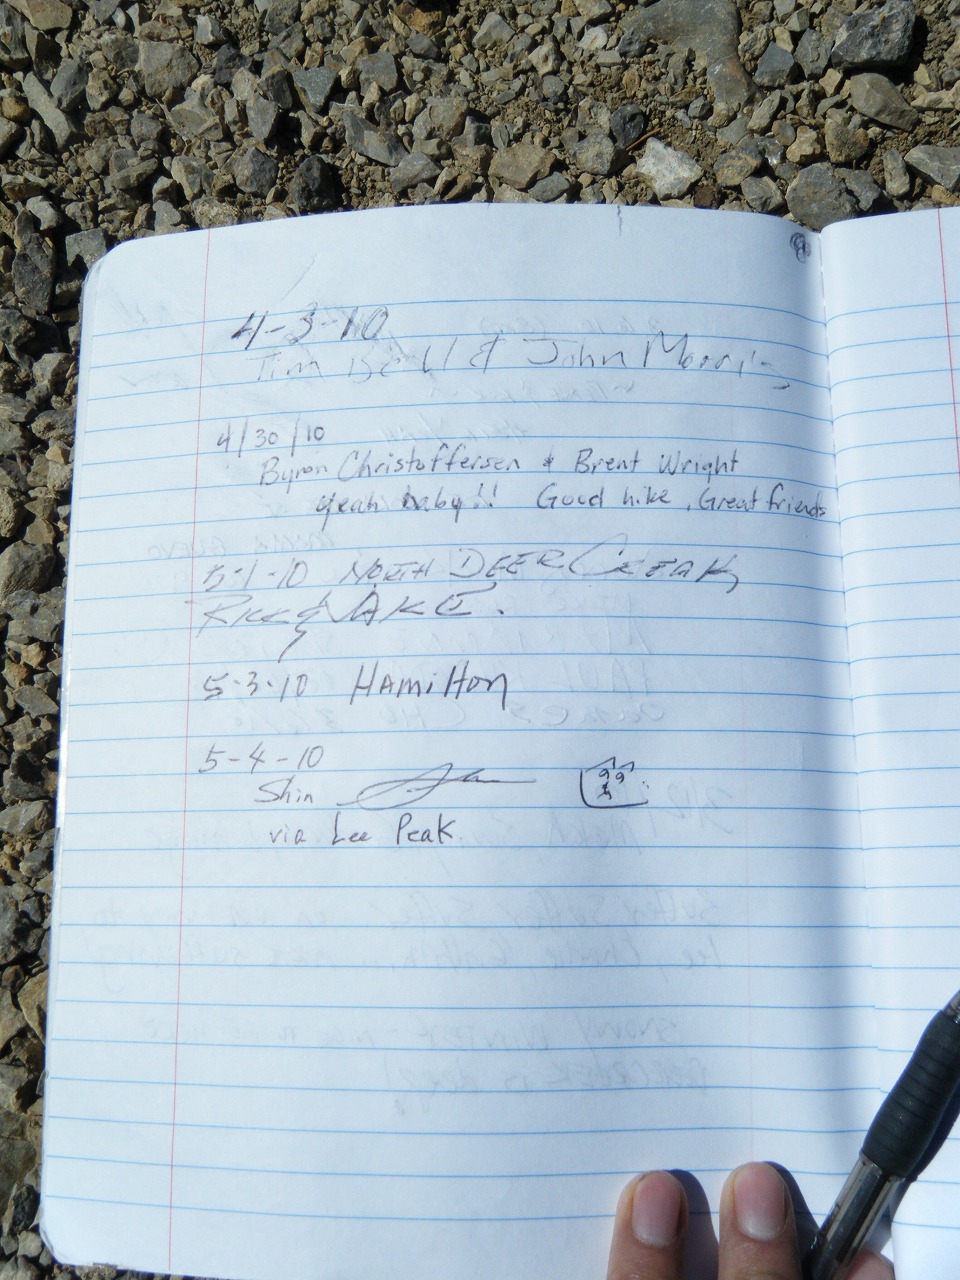 4-3-10
Tim Bell & John Morris
4/30/10
Byron Christoffersen & Brent Wright
yeah baby!! Good hike, Great friends
5-1-10 NORTH DEER CREEK,
RICK & JAKE.
5-3-10 HAMilTon
5-4-10
Shin
via Lee Peak.